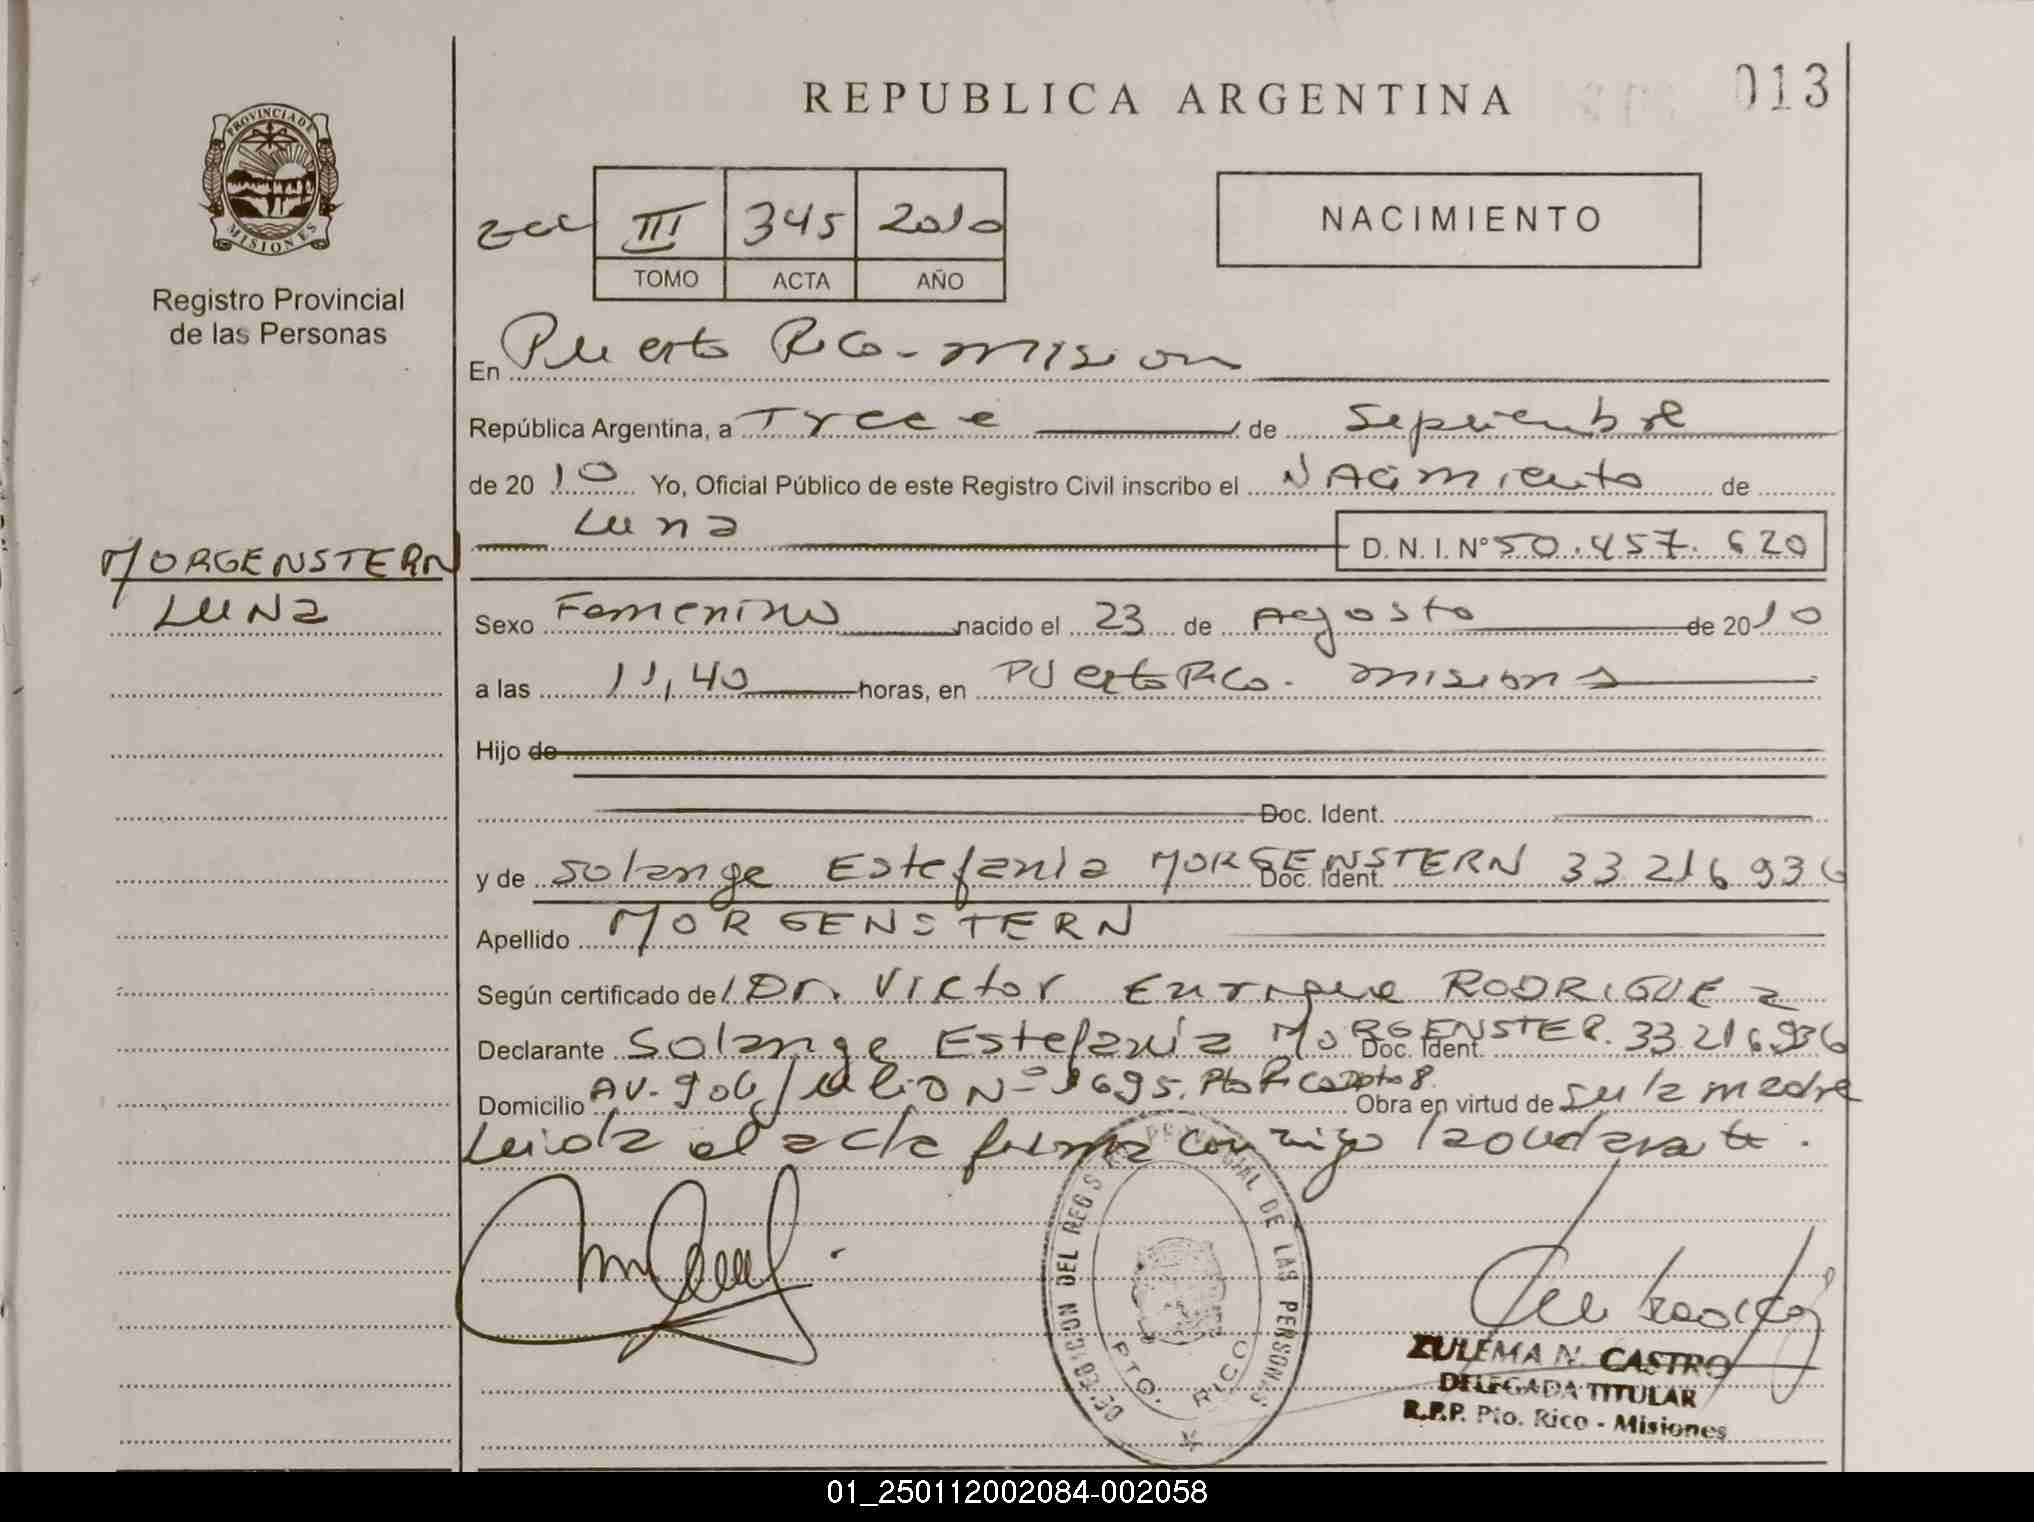 REPUBLICA ARGENTINA
013
PROVINCIA DE
MISIONES
Registro Provincial
de las Personas
III 345 2010
TOMO ACTA AÑO
NACIMIENTO
En Puerto Rico - mision
República Argentina, a Trece de Septiembre
de 2010 Yo, Oficial Público de este Registro Civil inscribo el NAcimiento de
Luna D. N. I. N° 50.457.620
MORGENSTERN
LUNa
Sexo Femenino nacido el 23 de Agosto de 2010
a las 11,40 horas, en PUerto Rico - misiones
Hijo de
Doc. Ident.
y de Solange Estefania MORGENSTERN Doc. Ident. 33 216 936
Apellido MORGENSTERN
Según certificado del Dr. Victor Enrique RODRIGUEz
Declarante Solange Estefania MORGENSTER. Doc. Ident. 33 216936
Domicilio AV. 9 de Julio N° 1695. Pto Rico Dpto 8. Obra en virtud de Ser la madre
Leida el acta firma conmigo la
DELEGACION DEL REGISTRO PROVINCIAL DE LAS PERSONAS
PTO. RICO
ZULEMA N. CASTRO
DELEGADA TITULAR
R.P.P. Pto. Rico - Misiones
01_250112002084-002058